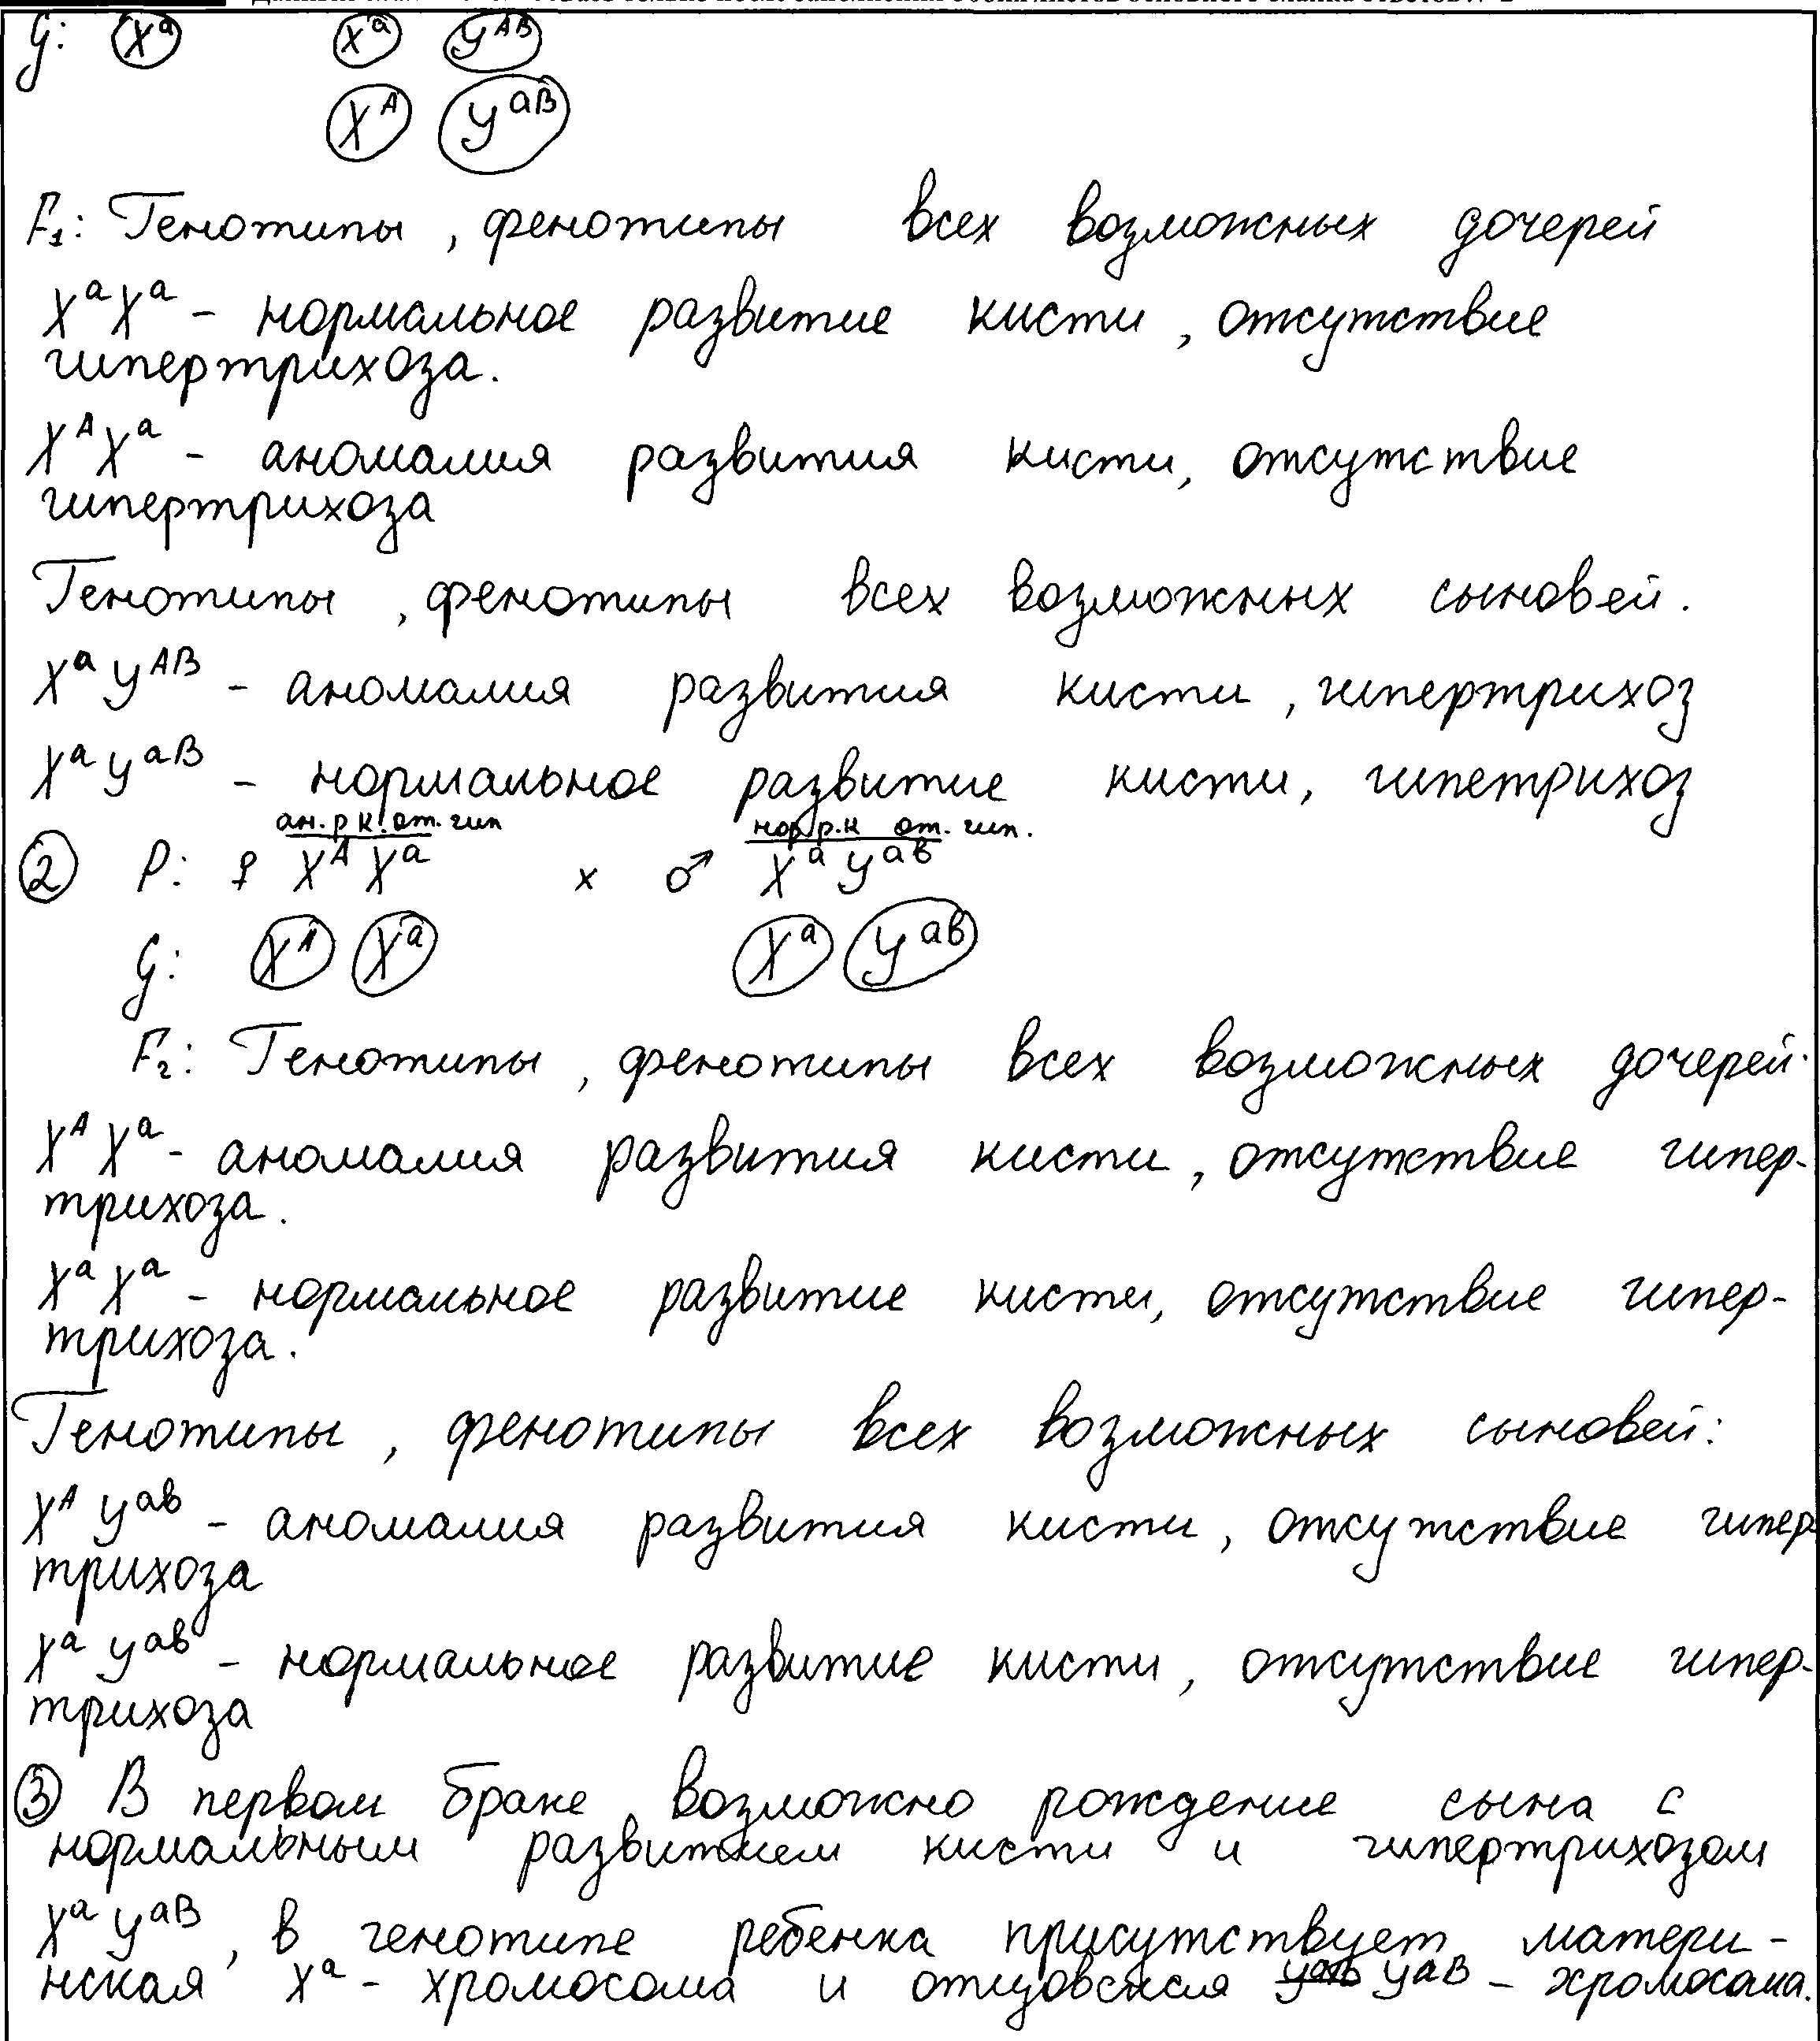 G: Xᵃ Xᵃ Yᴬᴮ
Xᴬ Yᵃᴮ
F₁: Генотипы, фенотипы всех возможных дочерей
XᵃXᵃ - нормальное развитие кисти, отсутствие
гипертрихоза.
XᴬXᵃ - аномалия развития кисти, отсутствие
гипертрихоза
Генотипы, фенотипы всех возможных сыновей.
XᵃYᴬᴮ - аномалия развития кисти, гипертрихоз
XᵃYᵃᴮ - нормальное развитие кисти, гипетрихоз
ан. р. к. от. гип нор р.к от. гип.
② P: ♀ XᴬXᵃ x ♂ XᵃYᵃᵇ
G: Xᴬ Xᵃ Xᵃ Yᵃᵇ
F₂: Генотипы, фенотипы всех возможных дочерей.
XᴬXᵃ - аномалия развития кисти, отсутствие гипер-
трихоза.
XᵃXᵃ - нормальное развитие кисти, отсутствие гипер-
трихоза.
Генотипы, фенотипы всех возможных сыновей:
XᴬYᵃᵇ - аномалия развития кисти, отсутствие гипер
трихоза
XᵃYᵃᵇ - нормальное развитие кисти, отсутствие гипер-
трихоза
③ В первом браке возможно рождение сына с
нормальным развитием кисти и гипертрихозом
XᵃYᵃᴮ, в генотипе ребенка присутствует матери-
нская Xᵃ - хромосома и отцовская YᵃB - хромосома.